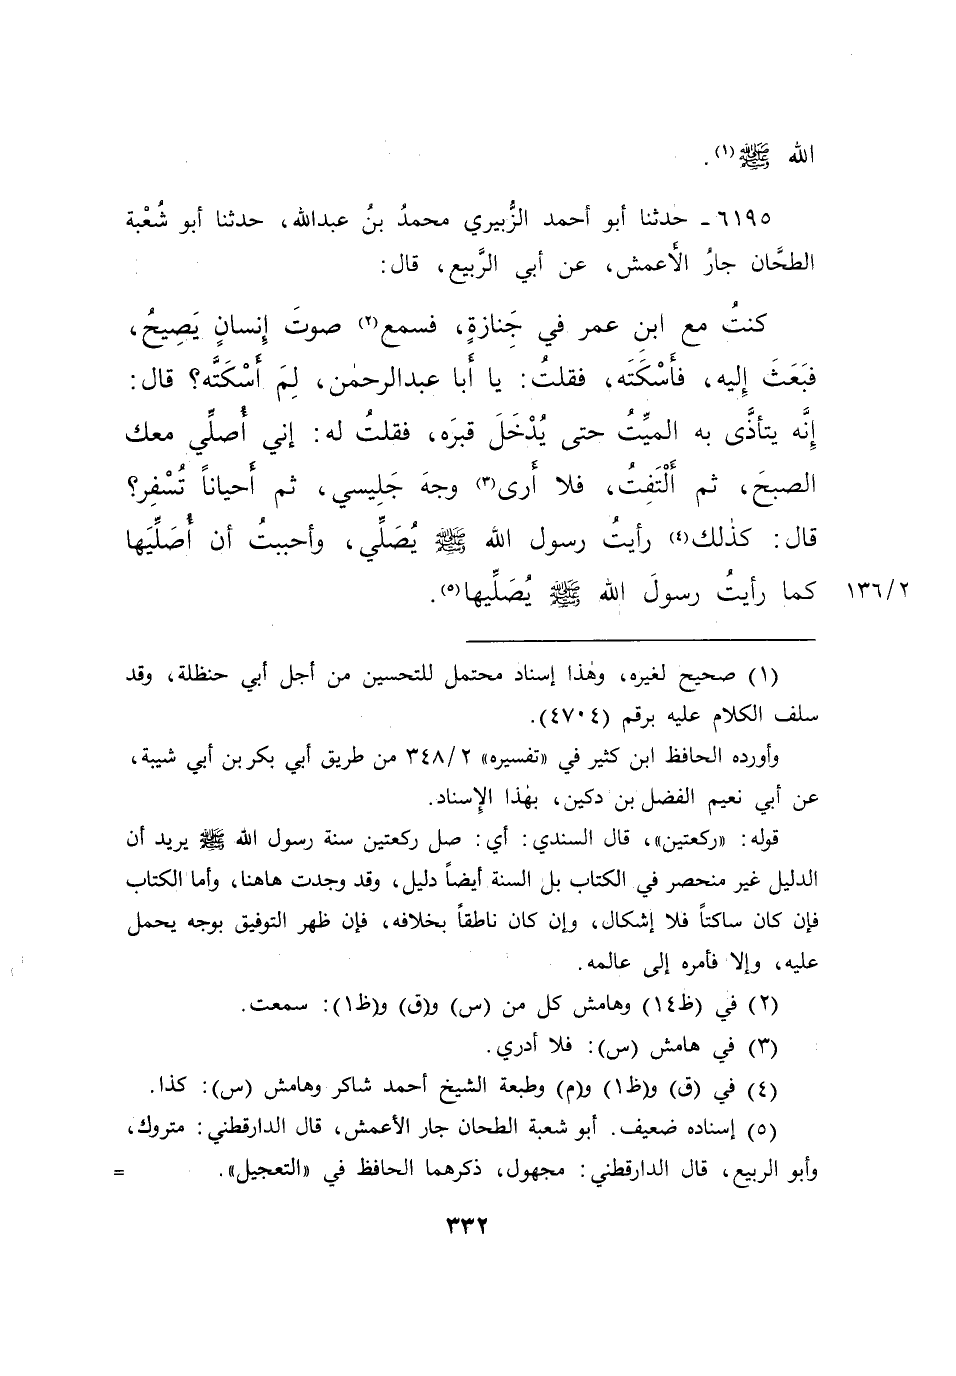 الله ﷺ(١).
٦١٩٥ - حدثنا أبو أحمد الزُّبيري محمدُ بنُ عبدالله، حدثنا أبو شُعْبة
الطحَّان جارُ الأَعمش، عن أبي الرَّبيع، قال:
كنتُ مع ابن عمر في جَنازةٍ، فسمع(٢) صوتَ إِنسانٍ يَصِيحُ،
فبَعَثَ إِليه، فأَسْكَتَه، فقلتُ: يا أَبا عبدالرحمٰن، لِمَ أَسْكَتَّه؟ قال:
إِنَّه يتأذَّى به الميِّتُ حتى يُدْخَلَ قبرَه، فقلتُ له: إني أُصلِّي معك
الصبحَ، ثم أَلْتَفِتُ، فلا أَرى(٣) وجهَ جَلِيسي، ثم أَحياناً تُسْفِر؟
قال: كذٰلك(٤) رأيتُ رسول الله ﷺ يُصَلِّي، وأحببتُ أن أُصَلِّيَها
كما رأيتُ رسولَ الله ﷺ يُصَلِّيها(٥). ١٣٦/٢
(١) صحيح لغيره، وهٰذا إسناد محتمل للتحسين من أجل أبي حنظلة، وقد
سلف الكلام عليه برقم (٤٧٠٤).
وأورده الحافظ ابن كثير في «تفسيره» ٣٤٨/٢ من طريق أبي بكر بن أبي شيبة،
عن أبي نعيم الفضل بن دكين، بهٰذا الإِسناد.
قوله: «ركعتين»، قال السندي: أي: صل ركعتين سنة رسول الله ﷺ يريد أن
الدليل غير منحصر في الكتاب بل السنة أيضاً دليل، وقد وجدت هاهنا، وأما الكتاب
فإن كان ساكتاً فلا إشكال، وإن كان ناطقاً بخلافه، فإن ظهر التوفيق بوجه يحمل
عليه، وإلا فأمره إلى عالمه.
(٢) في (ظ١٤) وهامش كل من (س) و(ق) و(ظ١): سمعت.
(٣) في هامش (س): فلا أدري.
(٤) في (ق) و(ظ١) و(م) وطبعة الشيخ أحمد شاكر وهامش (س): كذا.
(٥) إسناده ضعيف. أبو شعبة الطحان جار الأعمش، قال الدارقطني: متروك،
وأبو الربيع، قال الدارقطني: مجهول، ذكرهما الحافظ في «التعجيل». =
٣٣٢